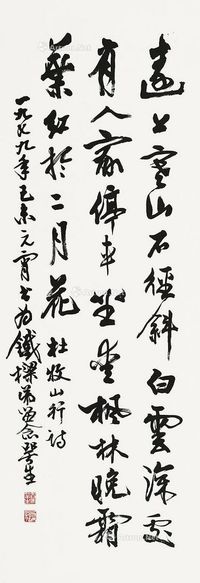 遠上寒山石徑斜白雲深處
有人家停車坐愛楓林晚霜
葉紅於二月花 杜牧山行詩
一九七九年己未元宵書為鐵樑弟留念